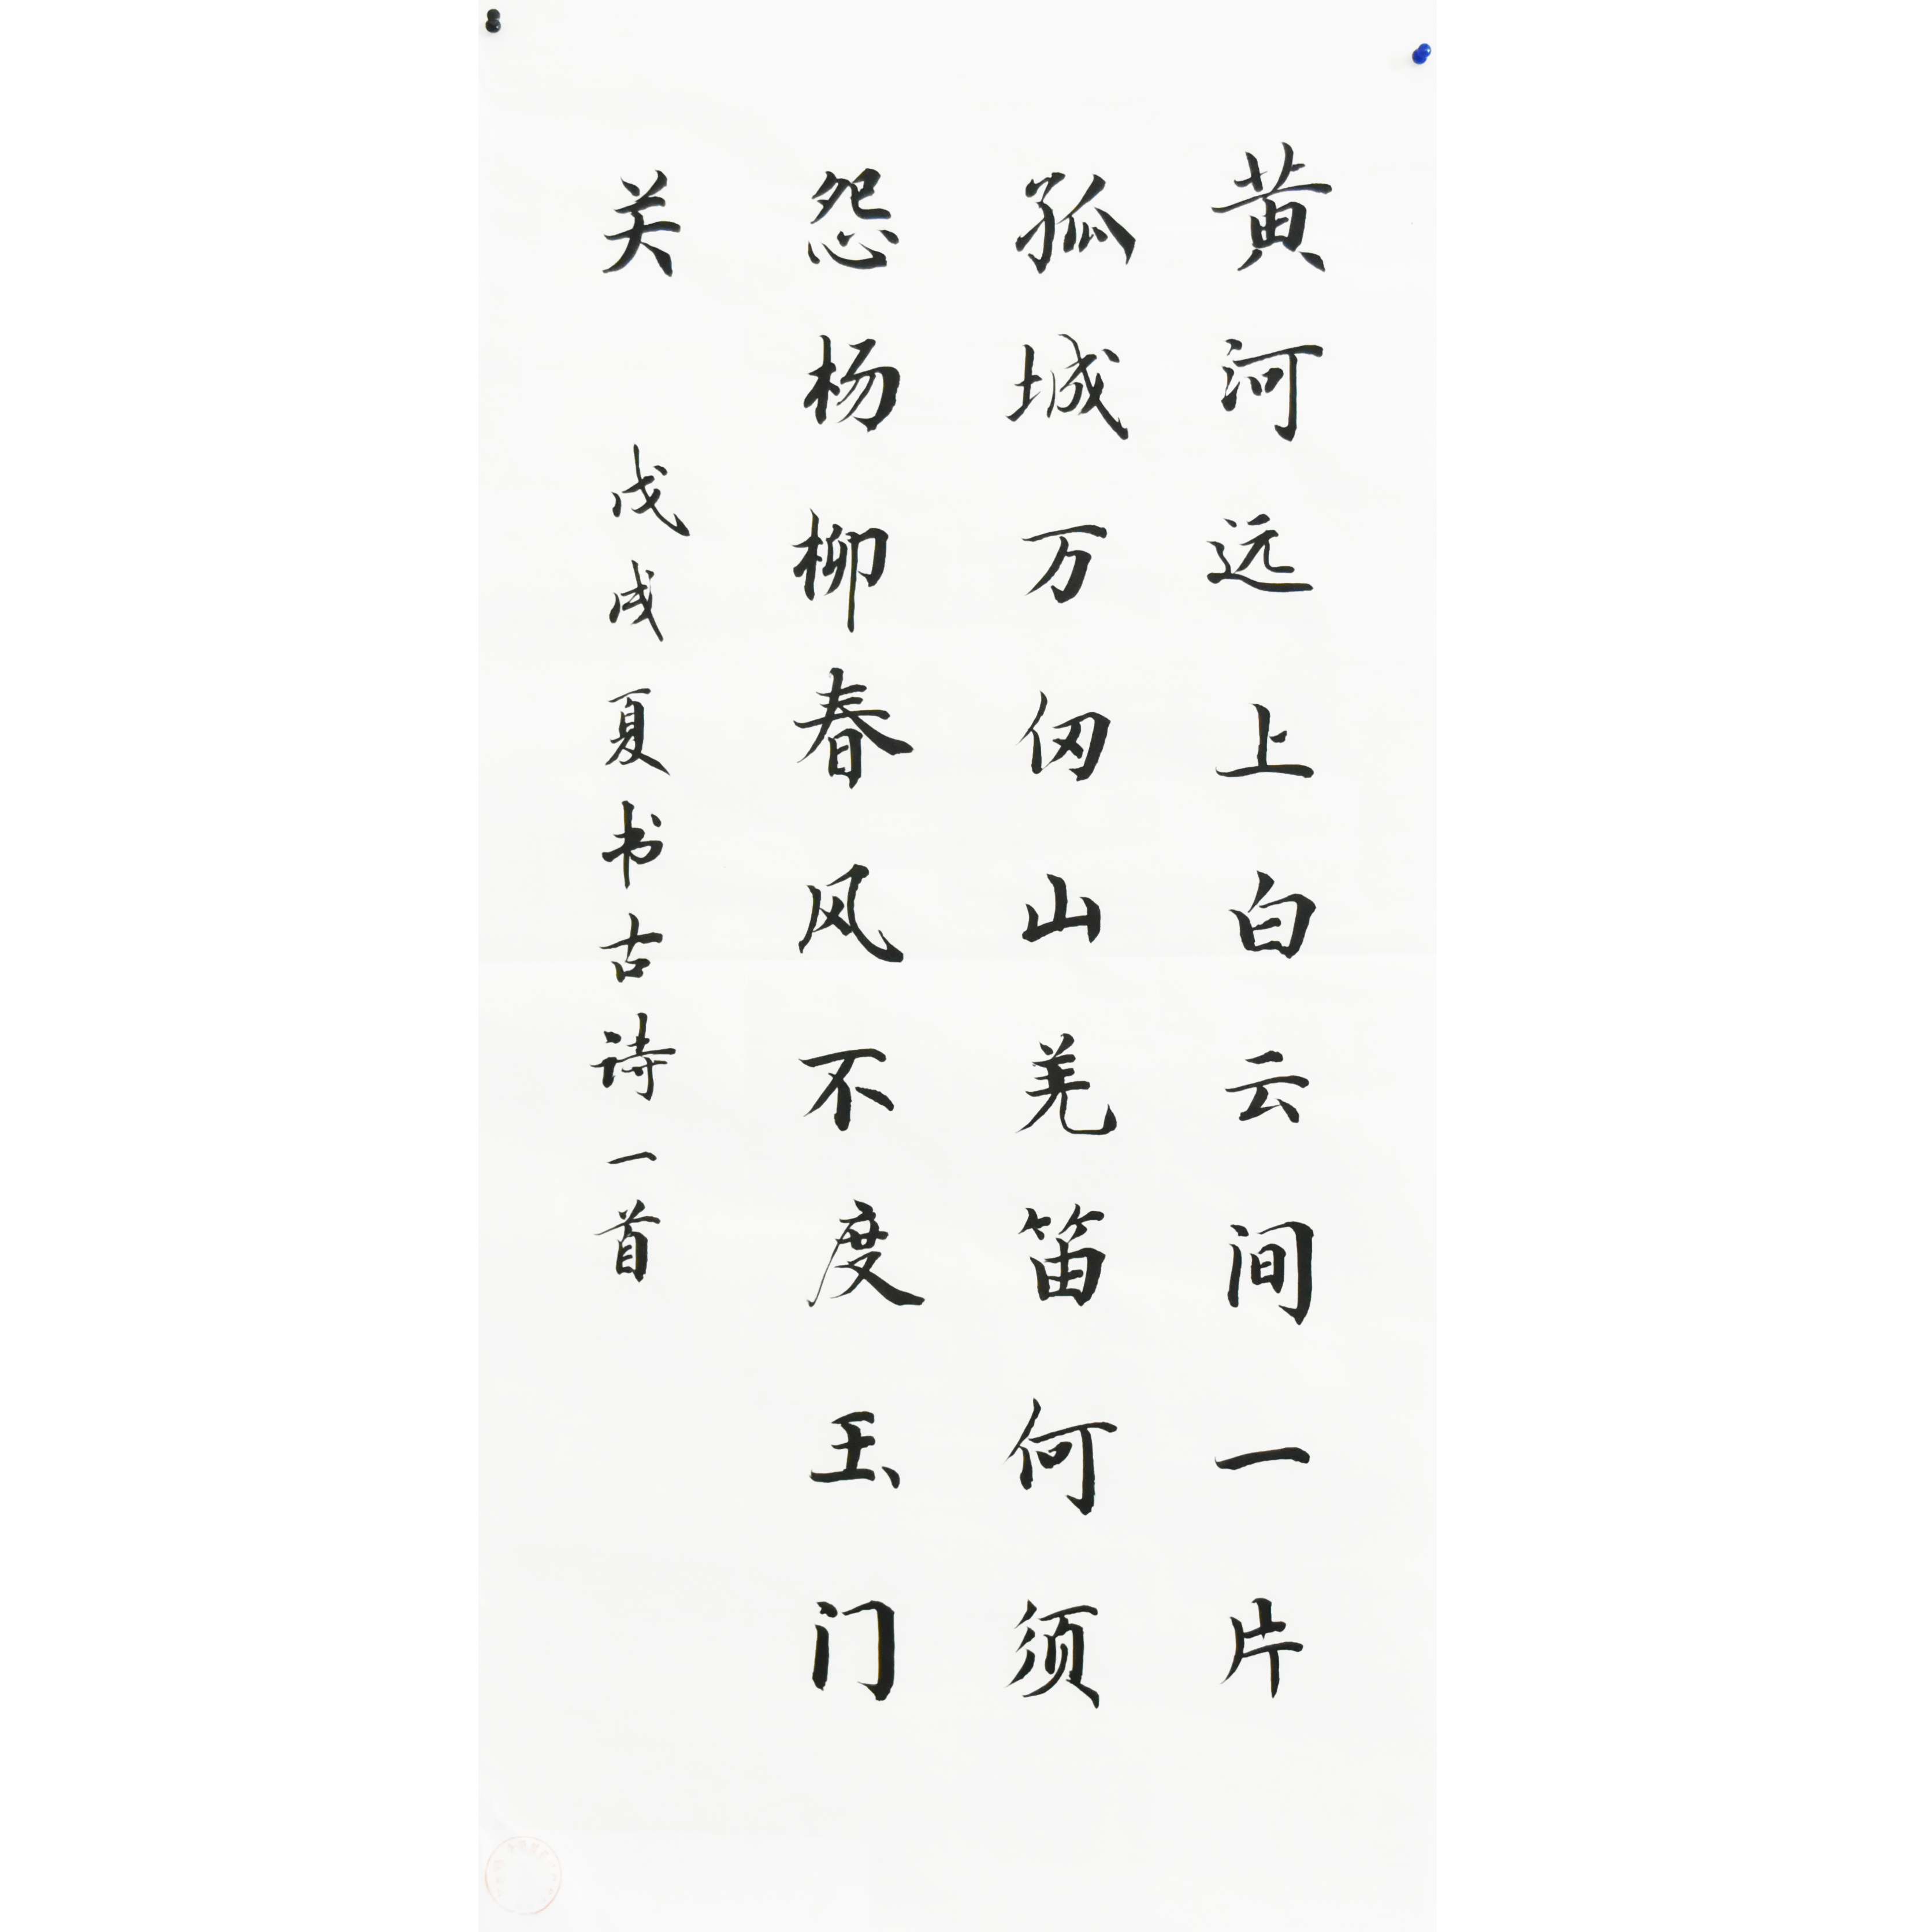 黄河远上白云间一片
孤城万仞山羌笛何须
怨杨柳春风不度玉门
关
戊戌夏书古诗一首